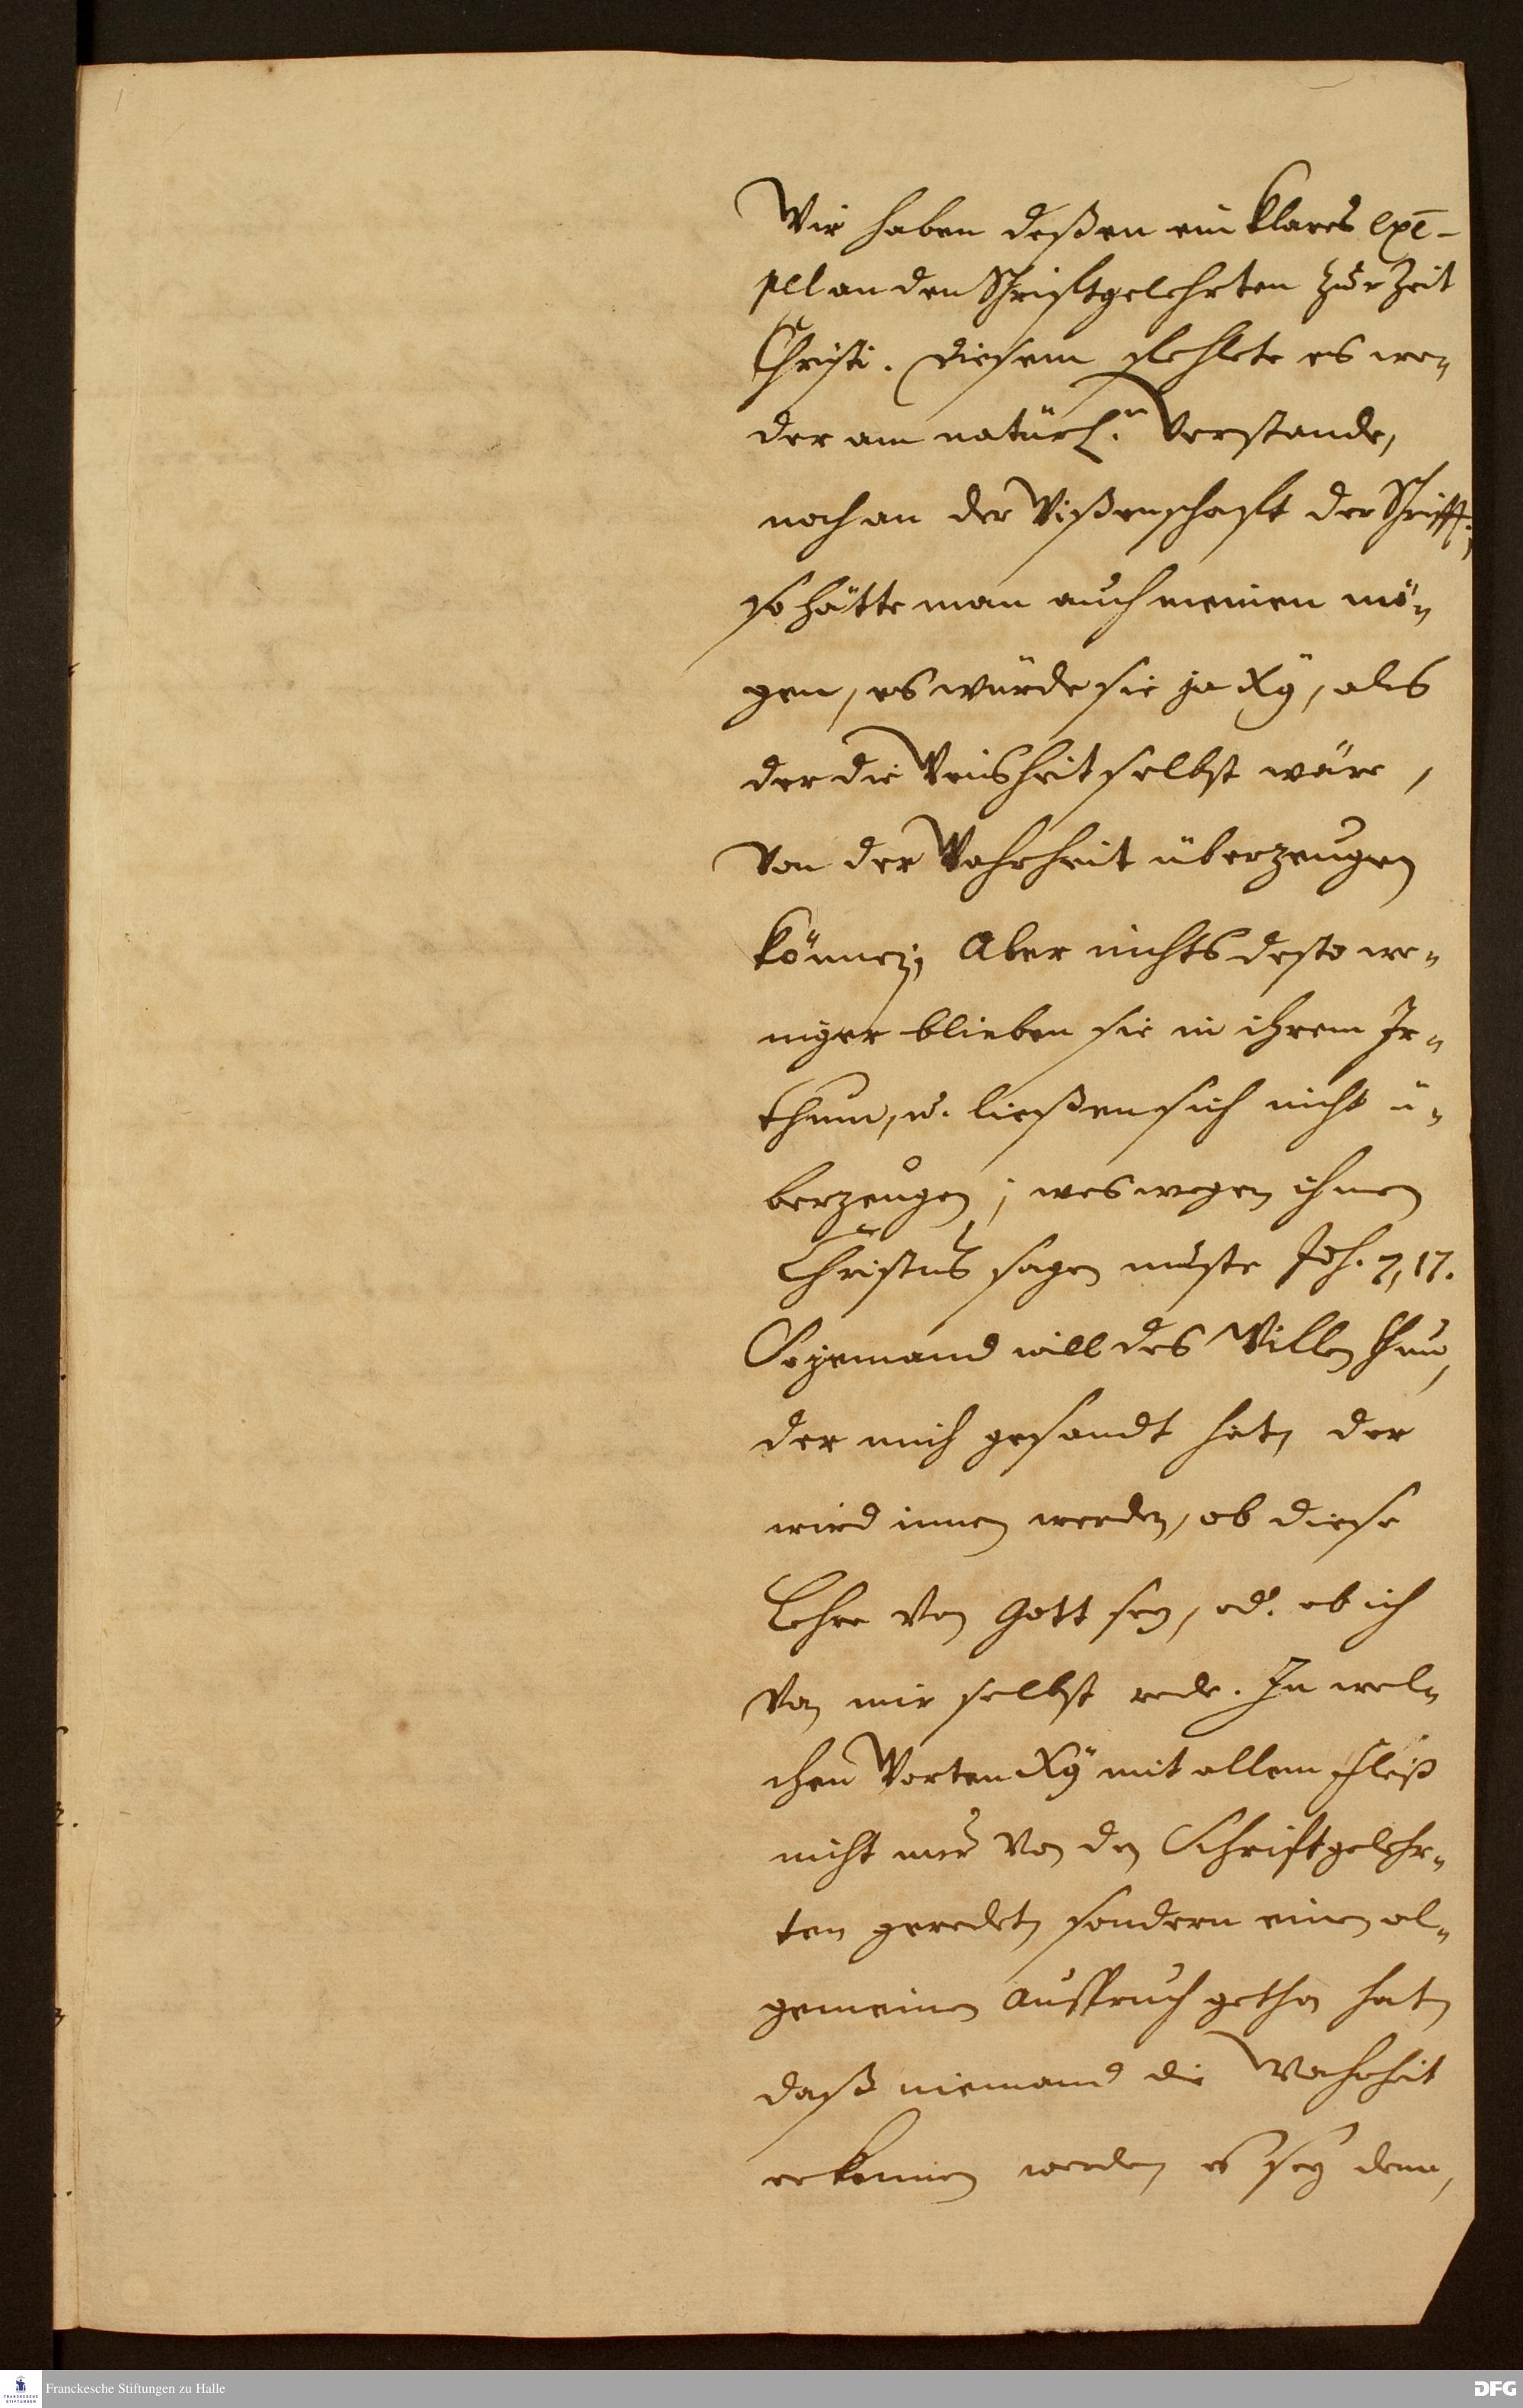 Wir haben deßen ein klares exē-
pel an den Schriftgelehrten zur Zeit
Christi. Diesem fehlete es we-
der am natürl.n Verstande,
noch an der Wißenschaft der Schrifft;
so hätte man auch meinen mö-
gen, es würde sie ja Xg, als
der die Weisheit selbst wäre,
von der Wahrheit überzeugen
können; Aber nichts desto we-
niger blieben sie in ihrem Ir-
thum, u. ließen sich nicht ü-
berzeugen; weswegen ihnen
Christus sagen muste Joh. 7, 17.
So jemand will des Willen thun,
der mich gesandt hat, der
wird innen werden, ob diese
Lehre von Gott sey, od. ob ich
von mir selbst rede. In wel-
chen Worten Xg mit allem Fleiß
nicht nur von den Schriftgelehr-
ten geredet, sondern einen al-
gemeinen Ausspruch gethan hat,
daß niemand die Wahrheit
erkennen werde, es sey denn,
Franckesche Stiftungen zu Halle
FRANCKESCHE
STIFTUNGEN
DFG